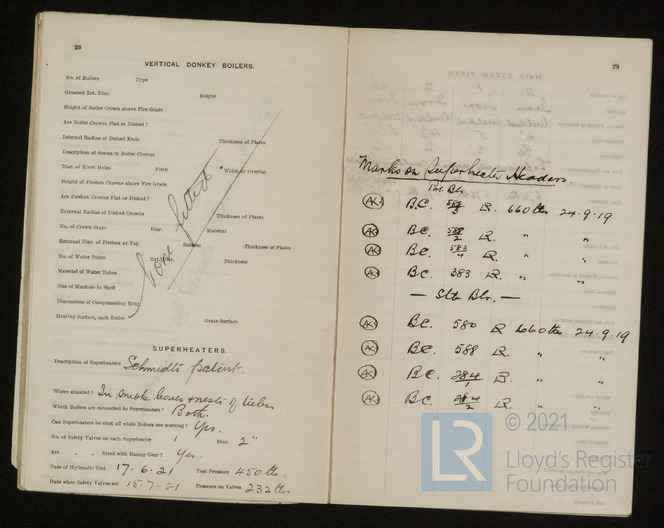 28
VERTICAL DONKEY BOILERS.
No. of Boilers Type
Greatest Int. Diar. Height
Height of Boiler Crown above Fire Grate
Are Boiler Crowns Flat or Dished?
Internal Radius of Dished Ends Thickness of Plates
Description of Seams in Boiler Crowns
Diar. of Rivet Holes Pitch Width of Overlap
Height of Firebox Crowns above Fire Grate
Are Firebox Crowns Flat or Dished?
External Radius of Dished Crowns Thickness of Plates
No. of Crown Stays Diar. Material
External Diar. of Firebox at Top Bottom Thickness of Plates
No. of Water Tubes Ext. Diar. Thickness
Material of Water Tubes
Size of Manhole in Shell
Dimensions of Compensating Ring
Heating Surface, each Boiler Grate Surface
None fitted
SUPERHEATERS.
Description of Superheaters Schmidts patent.
Where situated? In smoke boxes & nests of tubes
Which Boilers are connected to Superheaters? Both.
Can Superheaters be shut off while Boilers are working? Yes.
No. of Safety Valves on each Superheater 1 Diar. 2"
Are " " fitted with Easing Gear? Yes.
Date of Hydraulic Test 17.6.21 Test Pressure 450 lbs.
Date when Safety Valves set 15.7.21 Pressure on Valves 232 lbs
29
Marks on Superheater Headers
Port Blr
AK B.C. LR. 660 lbs 24.9.19
AK B.C. 2 LR. " "
AK B.C. 583 4 LR. " "
AK B.C. 383 LR. " "
— Stb Blr. —
AK B.C. 580 LR 660 lbs 24.9.19
AK B.C. 588 LR. " "
AK B.C. 284 1 LR. " "
AK B.C. 2 LR. " "
LR © 2021
Lloyd's Register
Foundation